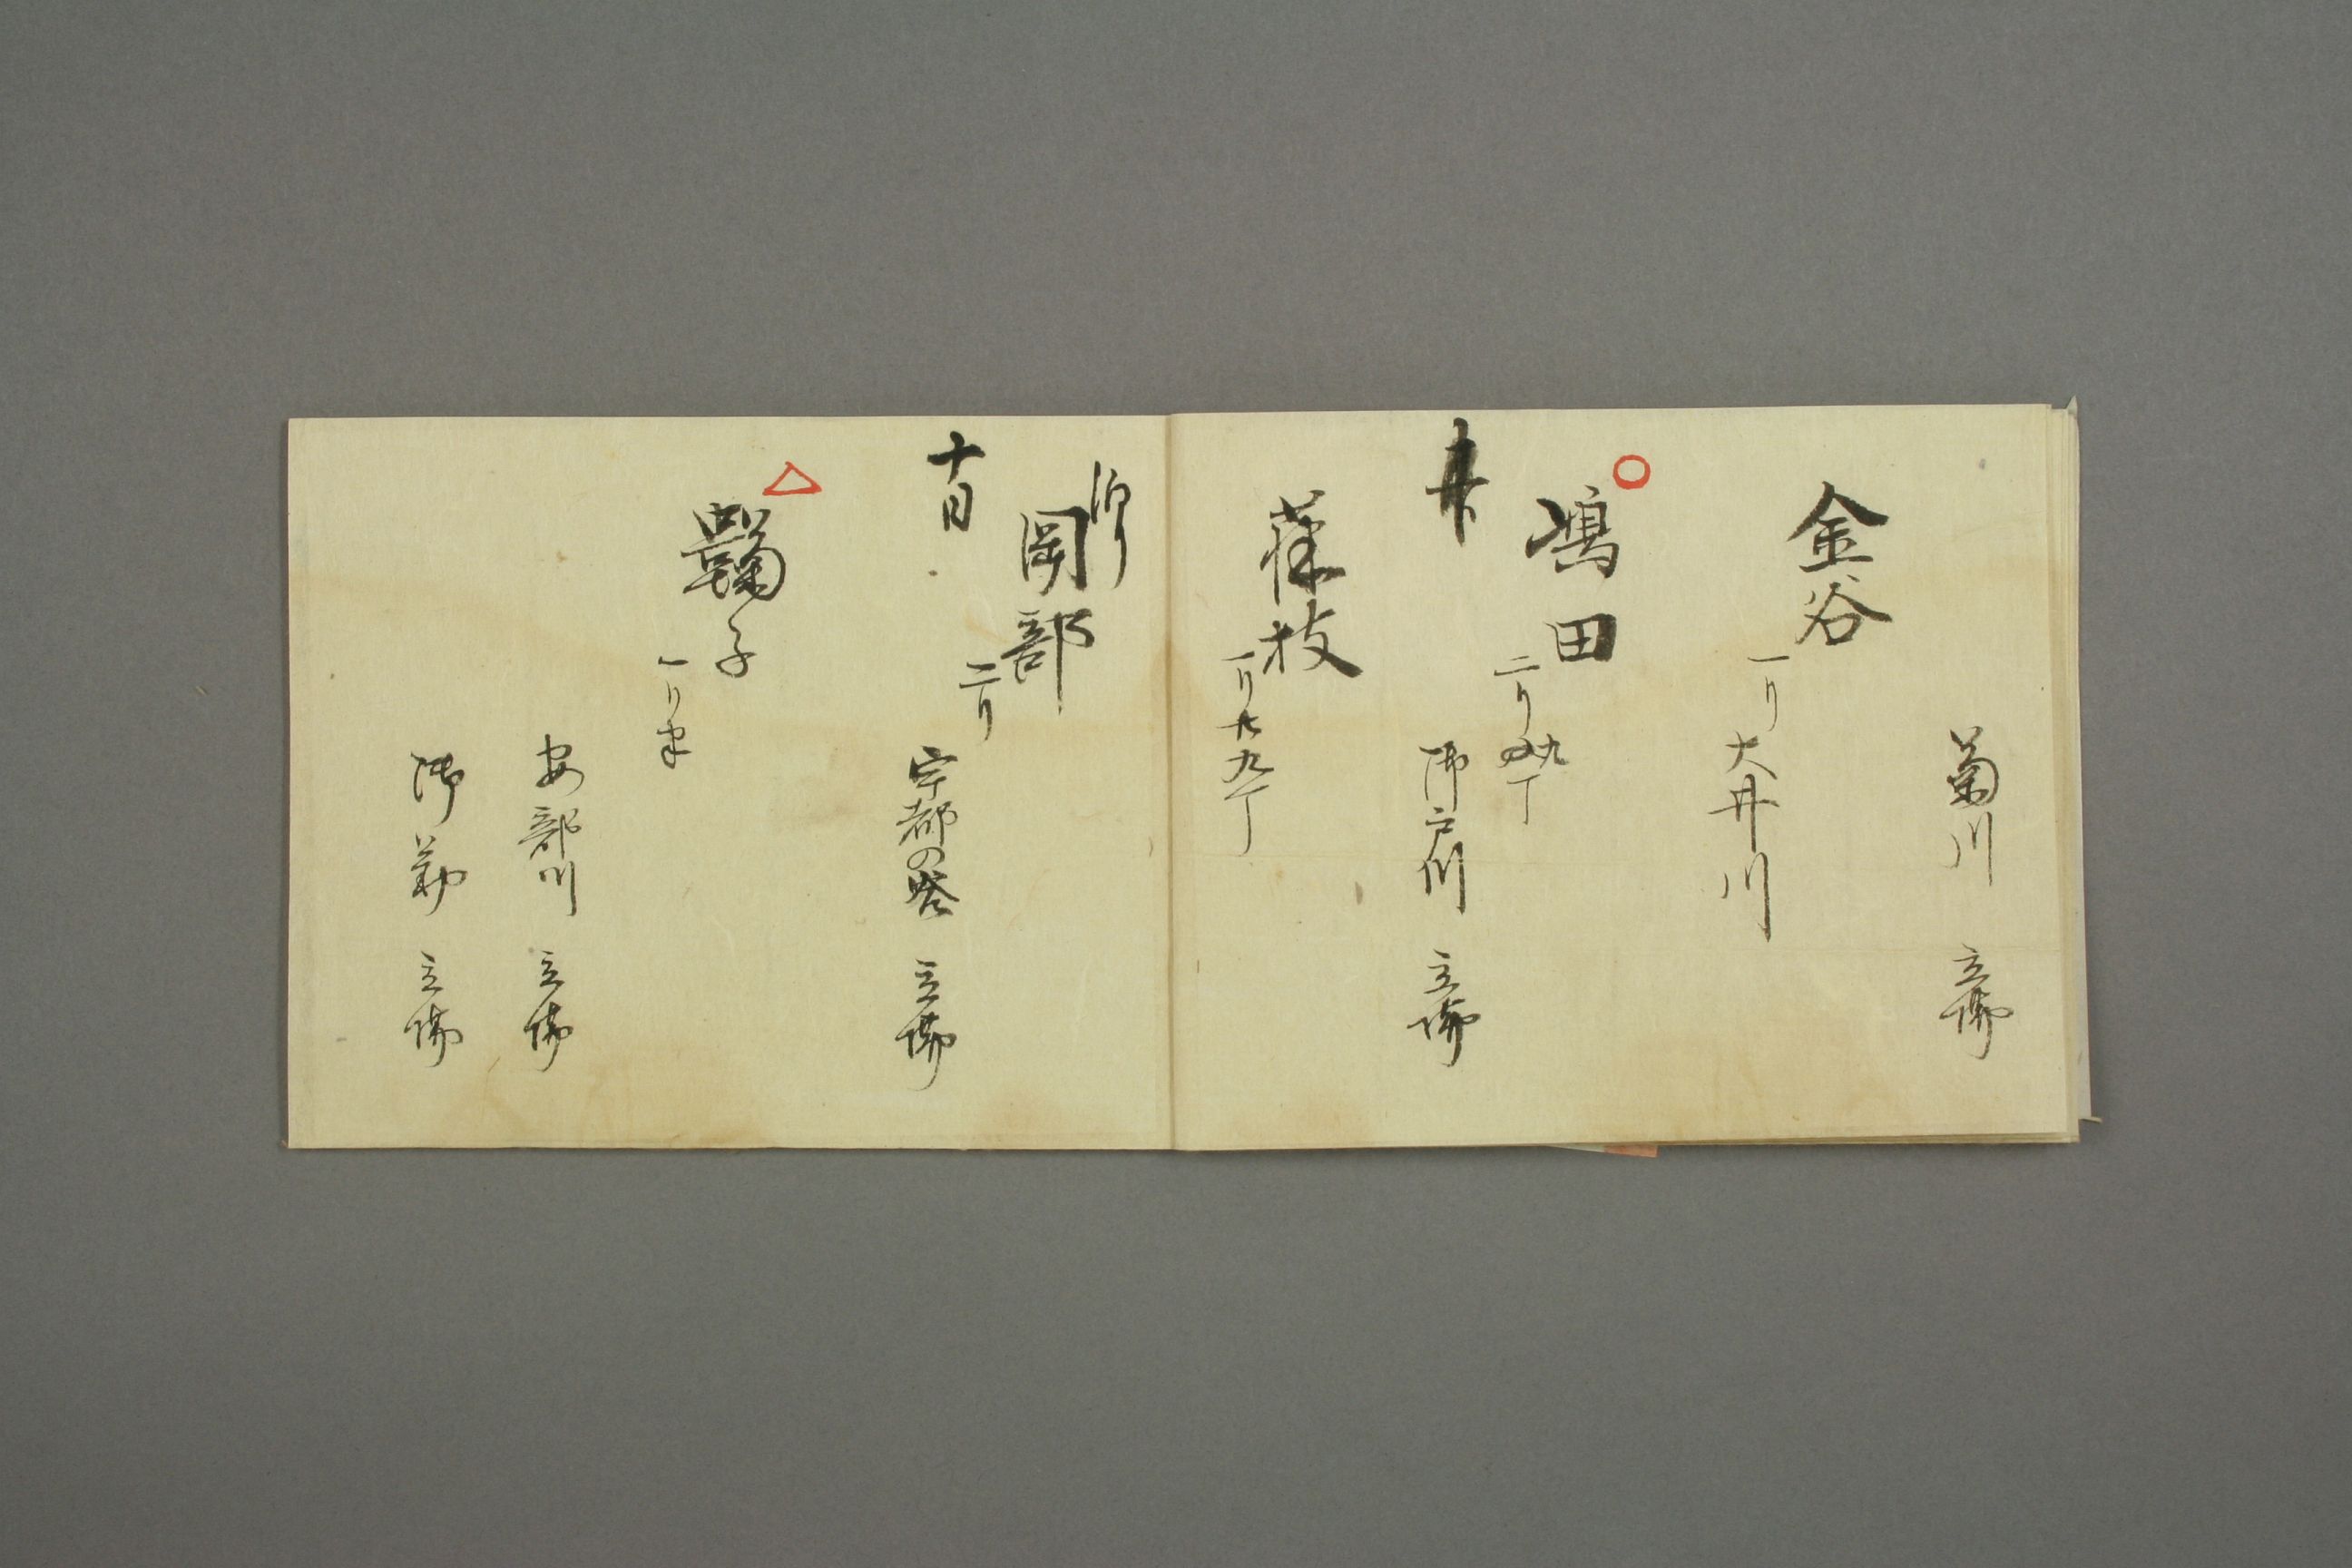 菊川　立場
金谷
一り
大井川
嶋田
二り九丁
瀬戸川　立場
藤枝
一り廿九丁
岡部
二り
十日
宇都の谷　立場
鞠子
一り半
安部川　立場
弥勒　立場